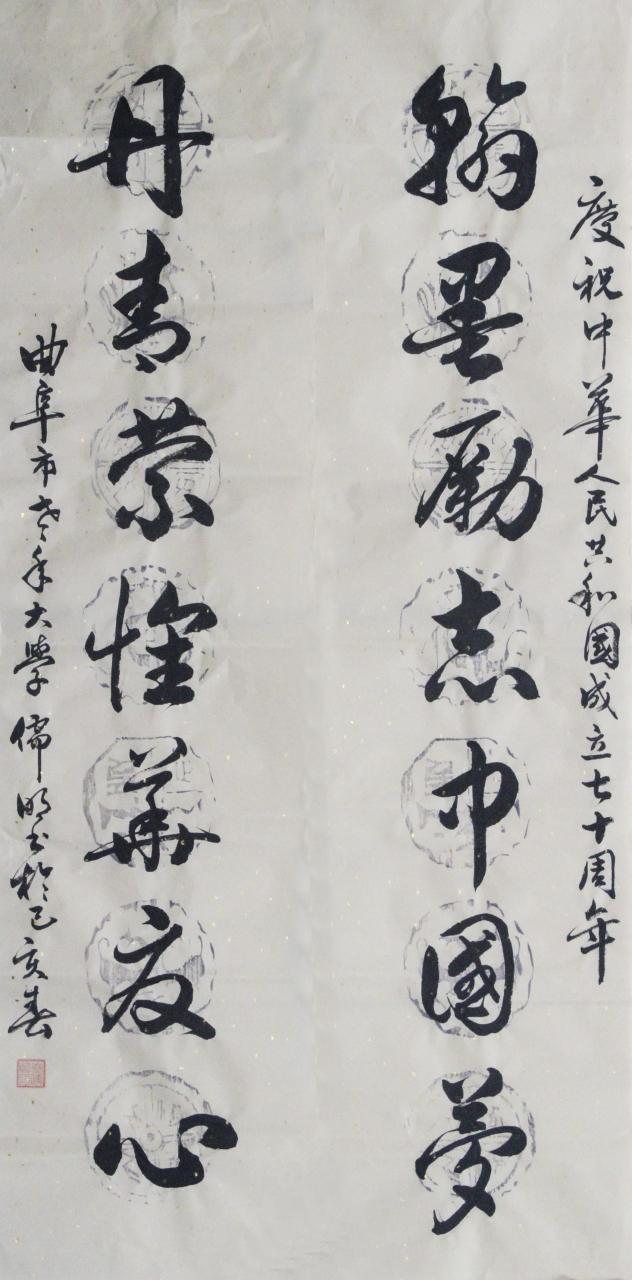 慶祝中華人民共和國成立七十周年
翰墨勵志中國夢
丹青萦懷華夏心
曲阜市老年大學儒明书於己亥春